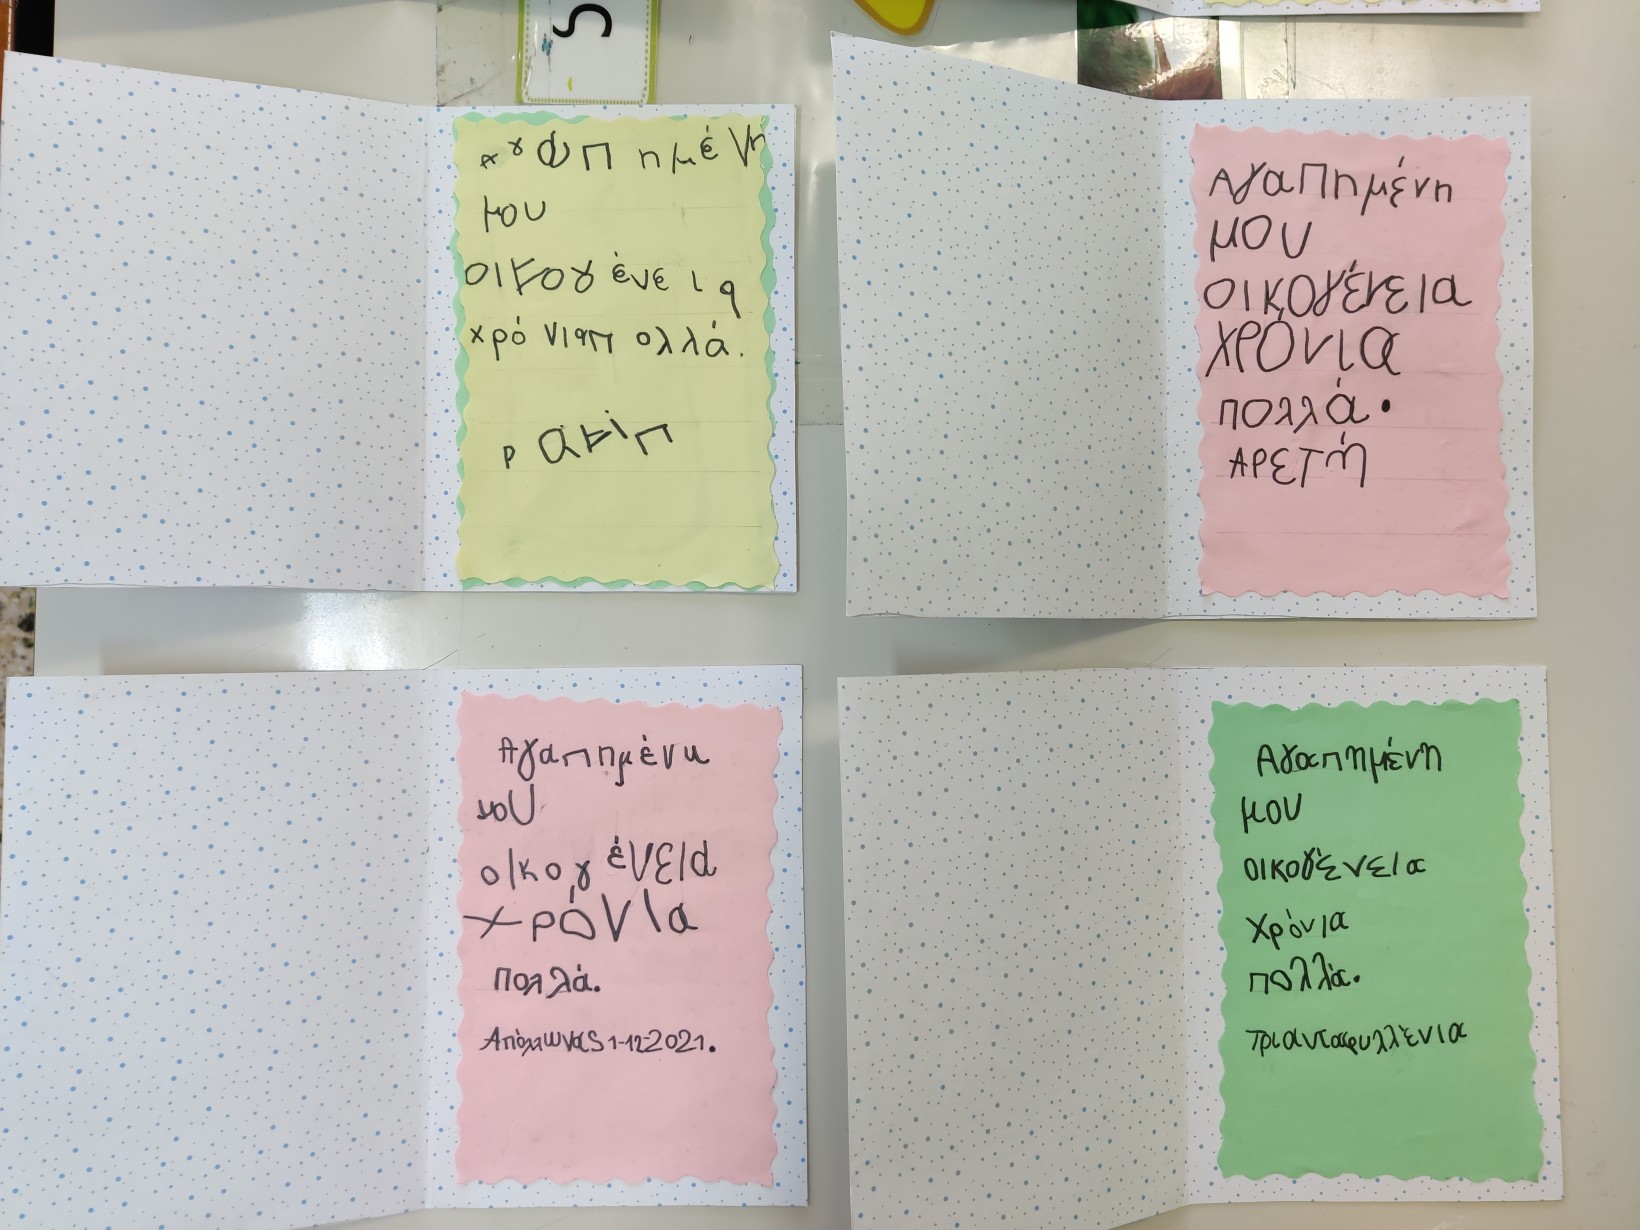 ς
Αγαπημένη
μου
οικογένεια
χρόνιαπολλά.
ρακίπ
Αγαπημένη
μου
οικογένεια
χρόνια
πολλά.
ΑΡΕΤή
Αγαπημένη
μου
οικογένεια
χρόνια
πολλά.
Απόλλωνας 1-12-2021.
Αγαπημένη
μου
οικογένεια
χρόνια
πολλά.
Τριανταφυλλένια